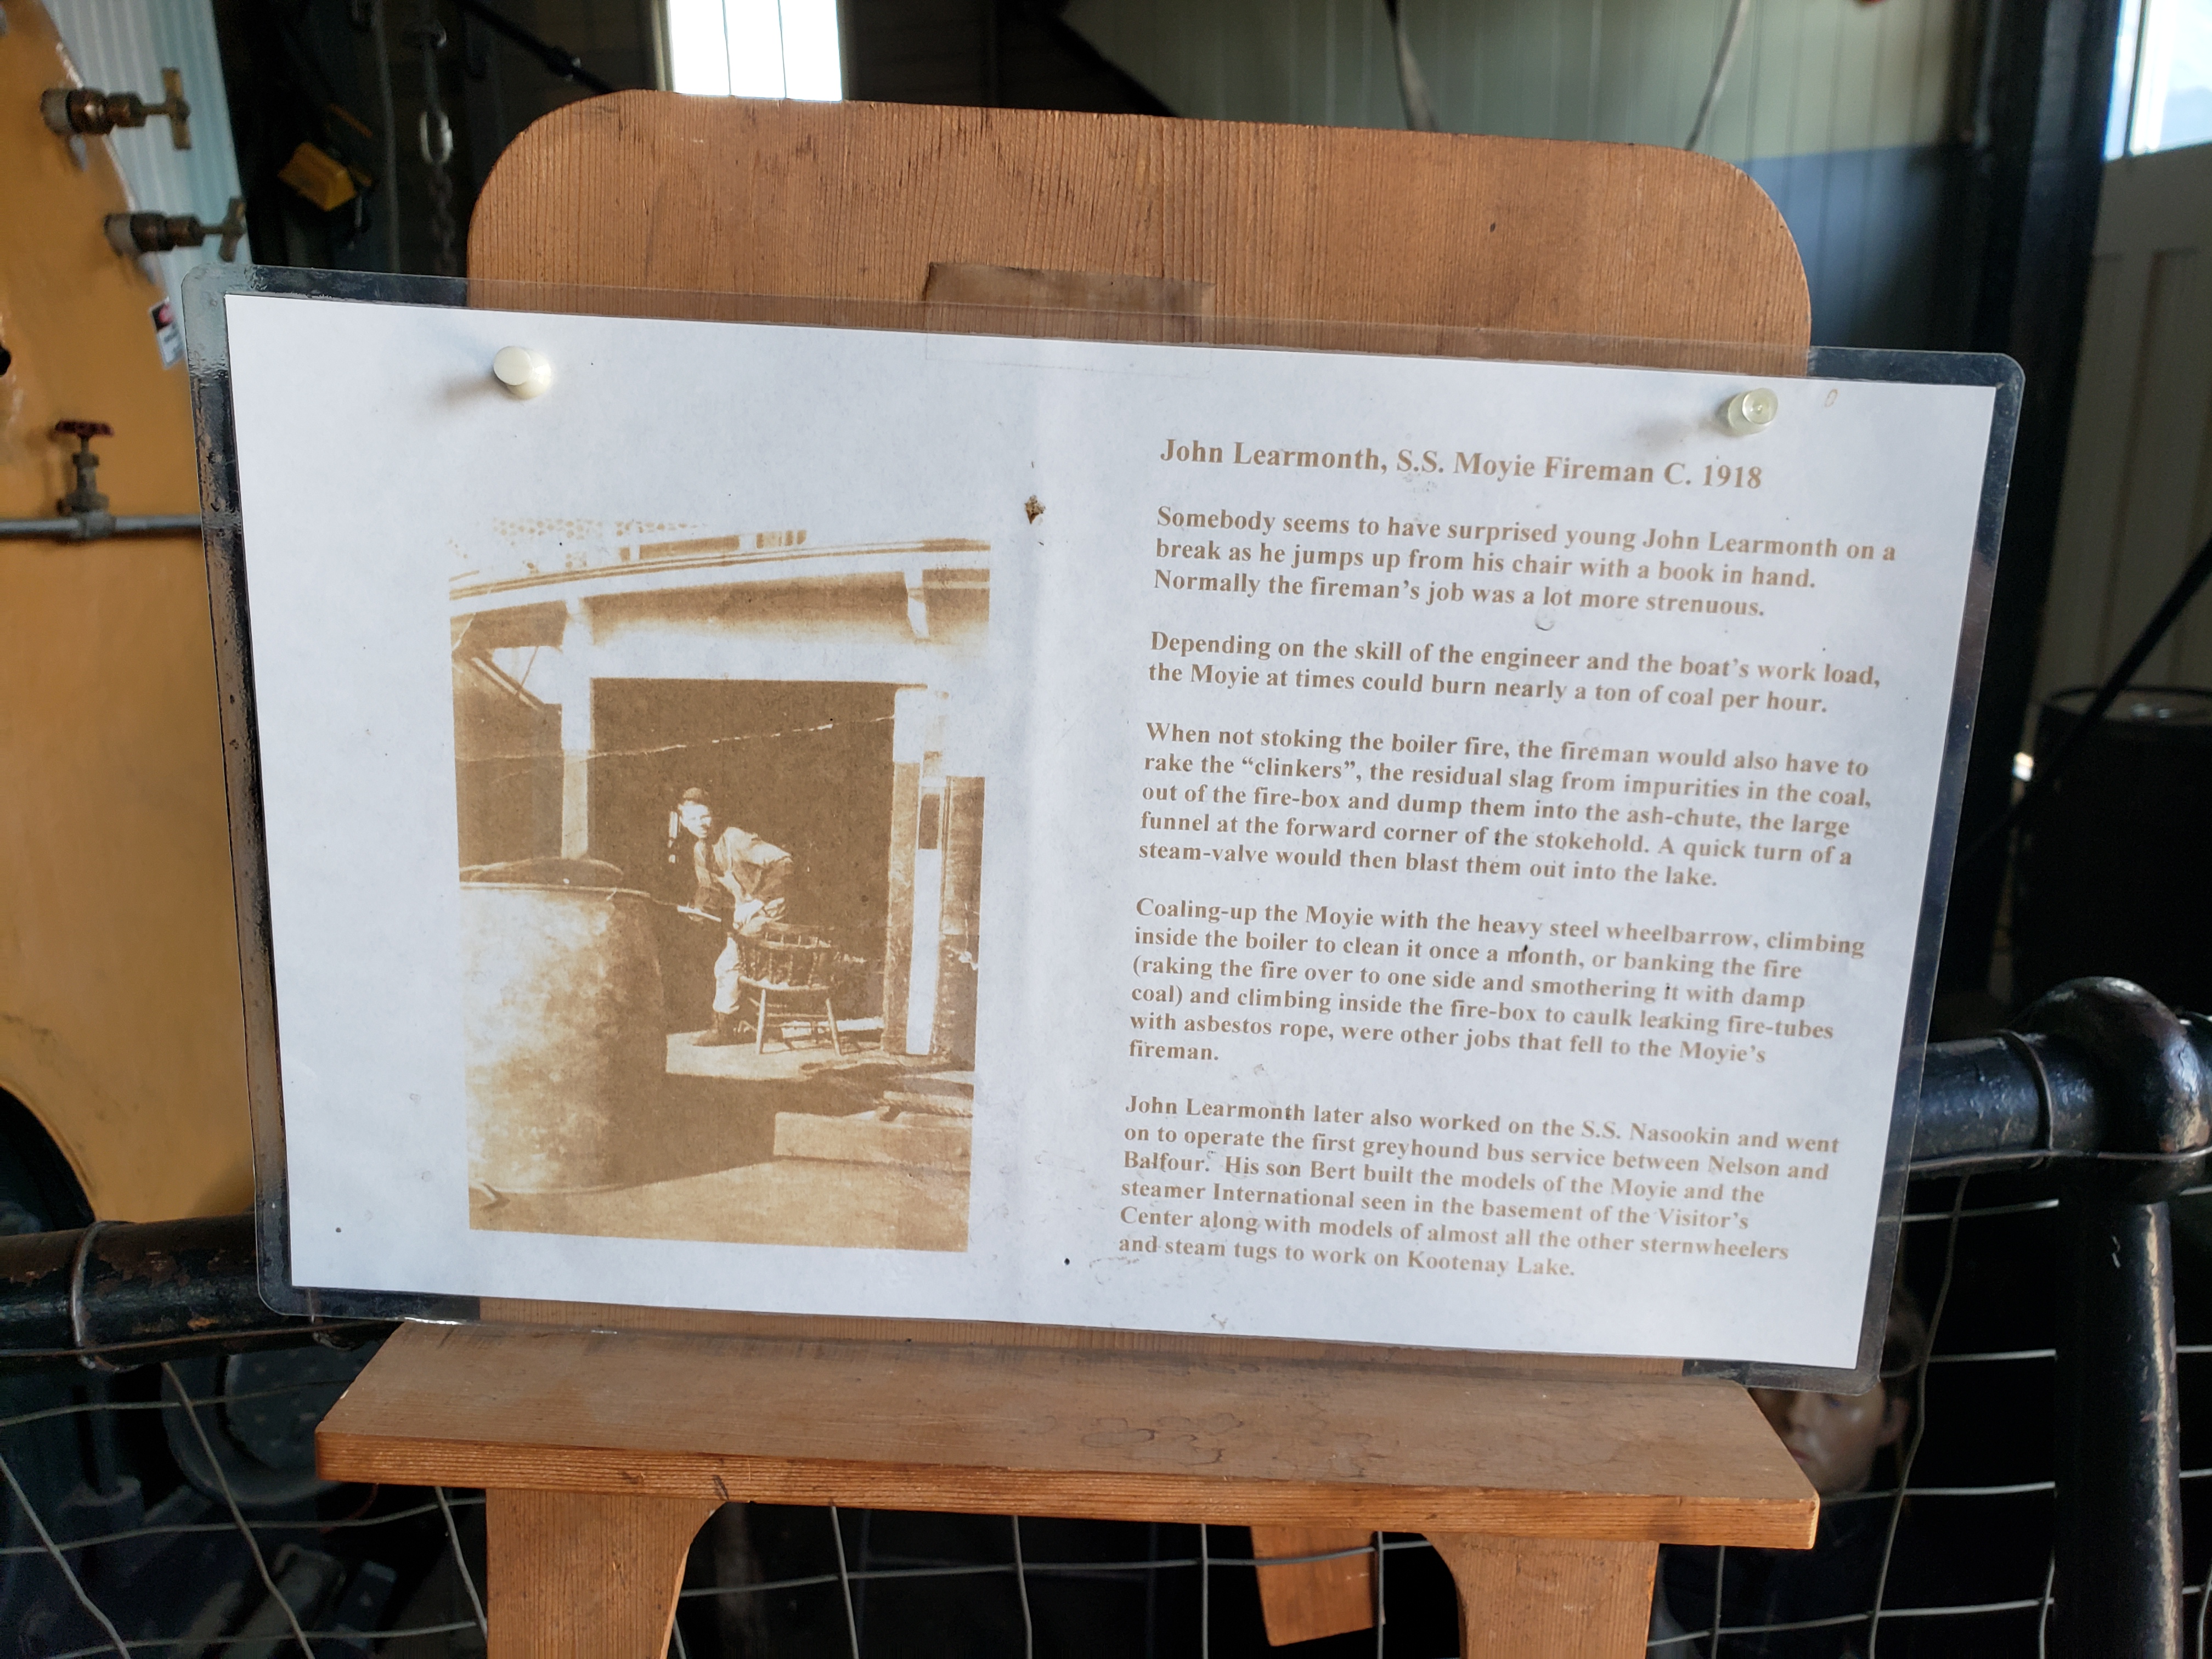 John Learmonth, S.S. Moyie Fireman C. 1918
Somebody seems to have surprised young John Learmonth on a
break as he jumps up from his chair with a book in hand.
Normally the fireman's job was a lot more strenuous.
Depending on the skill of the engineer and the boat's work load,
the Moyie at times could burn nearly a ton of coal per hour.
When not stoking the boiler fire, the fireman would also have to
rake the "clinkers", the residual slag from impurities in the coal,
out of the fire-box and dump them into the ash-chute, the large
funnel at the forward corner of the stokehold. A quick turn of a
steam-valve would then blast them out into the lake.
Coaling-up the Moyie with the heavy steel wheelbarrow, climbing
inside the boiler to clean it once a month, or banking the fire
(raking the fire over to one side and smothering it with damp
coal) and climbing inside the fire-box to caulk leaking fire-tubes
with asbestos rope, were other jobs that fell to the Moyie's
fireman.
John Learmonth later also worked on the S.S. Nasookin and went
on to operate the first greyhound bus service between Nelson and
Balfour. His son Bert built the models of the Moyie and the
steamer International seen in the basement of the Visitor's
Center along with models of almost all the other sternwheelers
and steam tugs to work on Kootenay Lake.